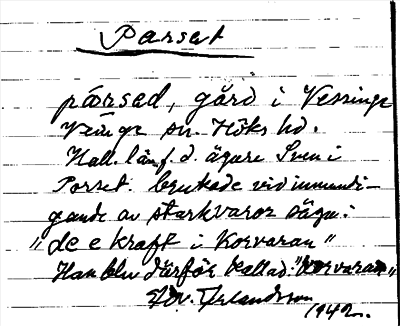 Parset
pársed, gård i Vessinge
Veinge sn. Höks hd.
Hall. län f. d. ägare Sven i
Porset. brukade vid inmundi-
gande av starkvaror säga:
"de e kraft i Korvaran"
Han blev därför kallad: "Korvaran"
Erlandsson
1942.